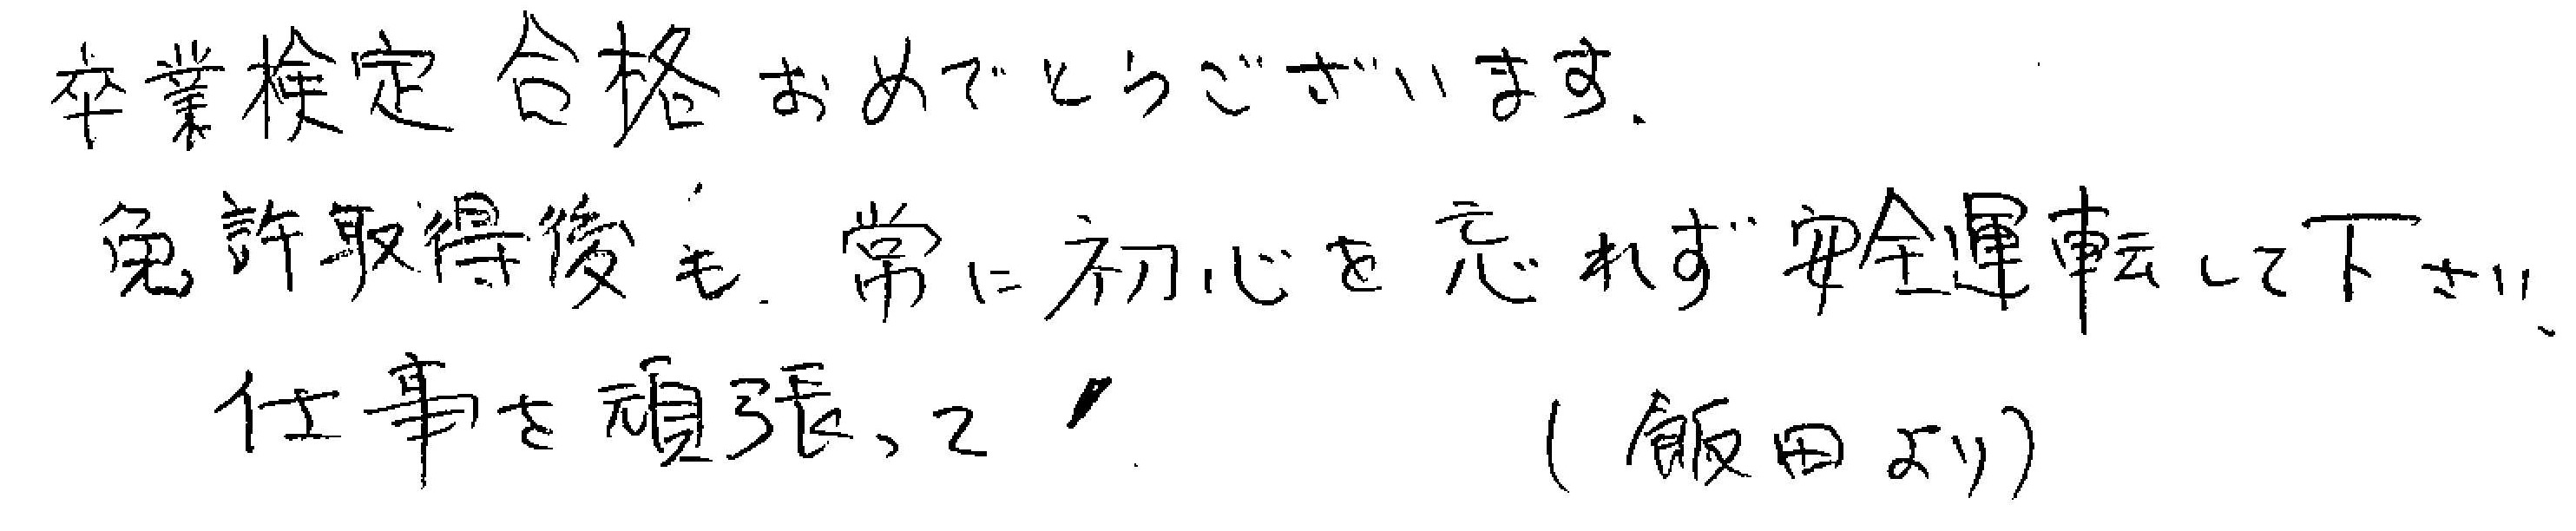 卒業検定合格おめでとうございます.
免許取得後も.常に初心を忘れず安全運転して下さい.
仕事を頑張って!
(飯田より)